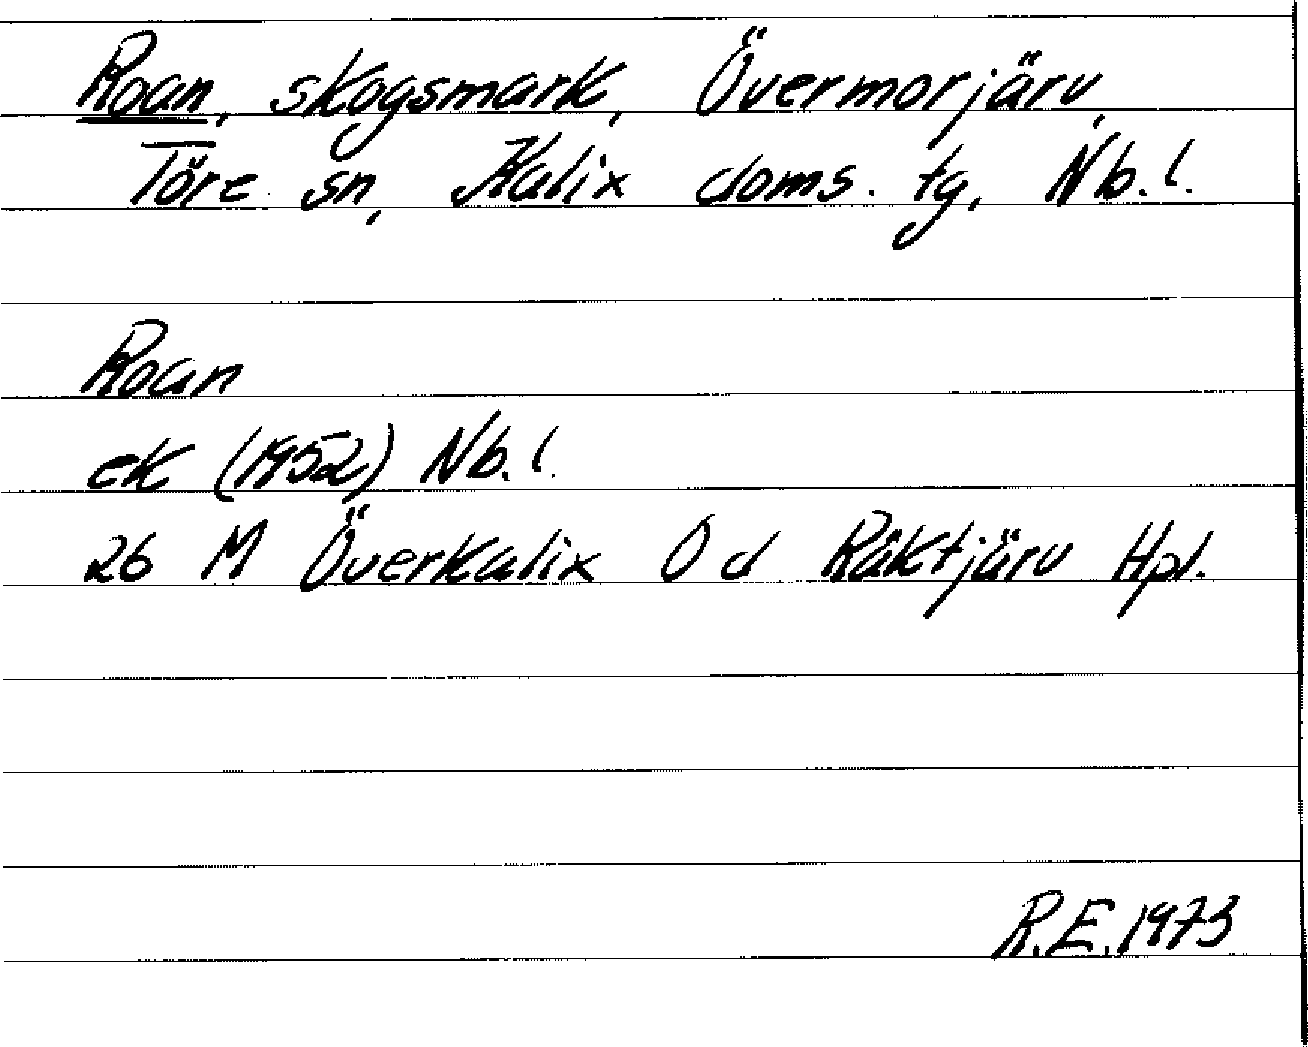 Roan, skogsmark, Övermorjärv,
Töre sn, Kalix doms. tg, Nb. l.
Roan
ek (1952) Nb. l.
26 M Överkalix Ö d Räktjärv Hpl.
R.E. 1973